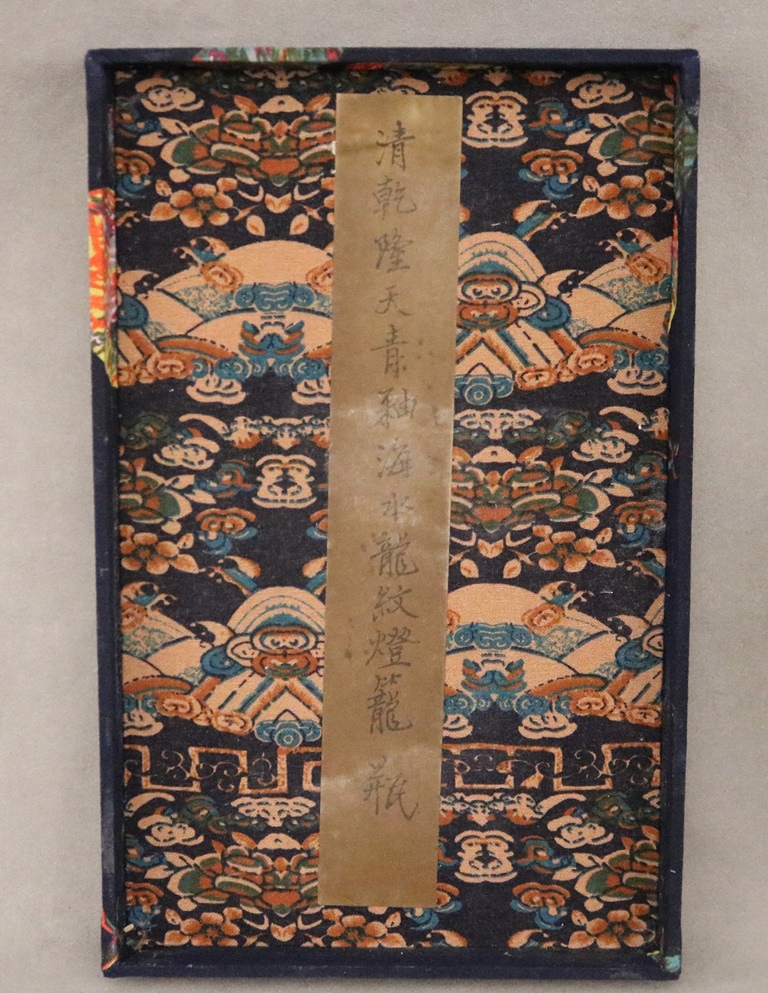 清乾隆天青釉海水龍紋燈籠瓶